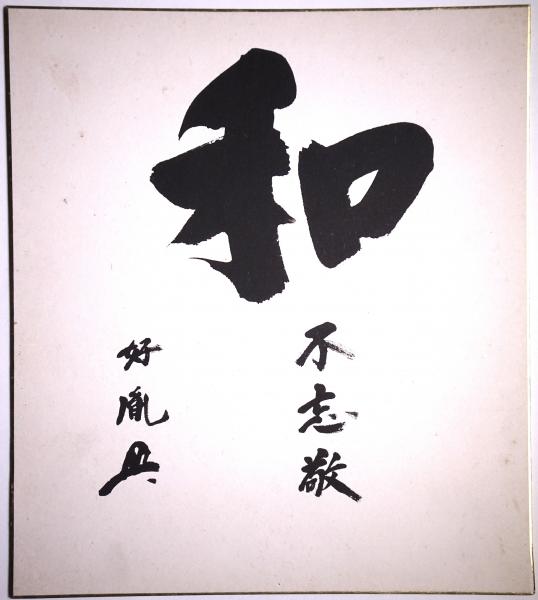 和
不忘敬
好胤